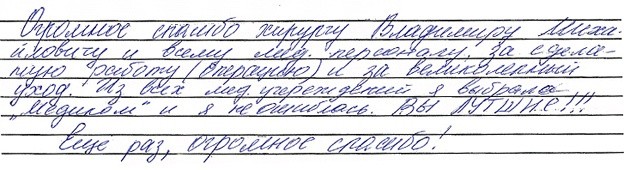 Огромное спасибо хирургу Владимиру Миха-
йловичу и всему мед. персоналу, за сдела-
ную работу (операцию) и за великолепный
уход. Из всех мед. учереждений я выбрала
„Медиком" и я не ошиблась. ВЫ ЛУТШИЕ!!!
Еще раз, огромное спасибо!